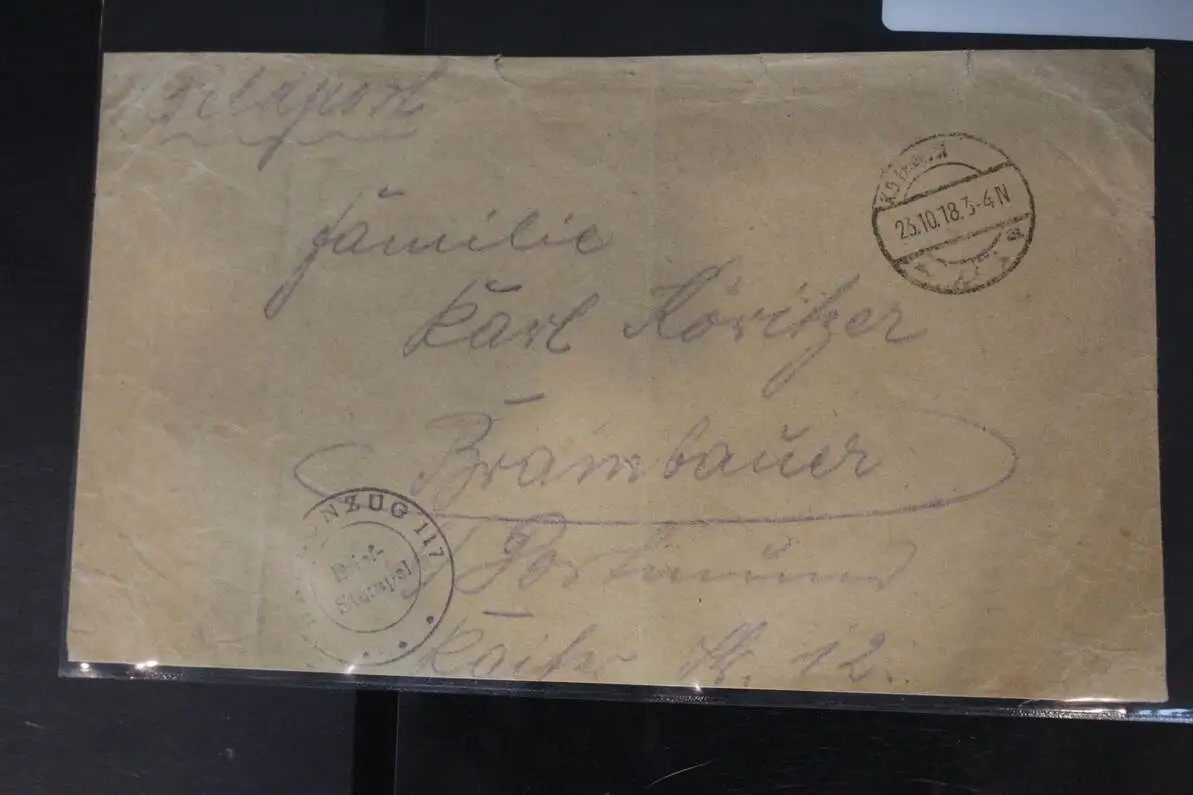 Feldpost
Familie
Karl Köritzer
Brambauer
Dortmund
Kaiser Str. 12.
23.10.18.3-4N
ONZUG 117
Brief-
Stempel